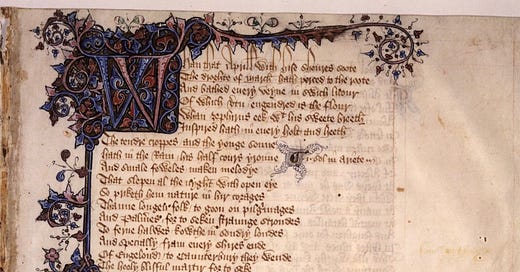 Whan that Aprill with hise shoures soote
The droghte of march hath perced to the roote
And bathed every veyne in swich licour
Of which vertu engendred is the flour
Whan zephirus eek with his sweete breeth
Inspired hath in every holt and heeth
The tendre croppes and the yonge sonne
hath in the Ram his half cours yronne sol in ariete
And smale foweles maken melodye
That slepen al the nyght with open eye
So priketh hem nature in hir corages
Thanne longen folk to goon on pilgrimages
And Palmeres for to seken straunge strondes
To ferne halwes kowthe in sondry londes
And specially fram every shires ende
Of Engelond to Caunterbury they wende
The hooly blisful martir for to seke